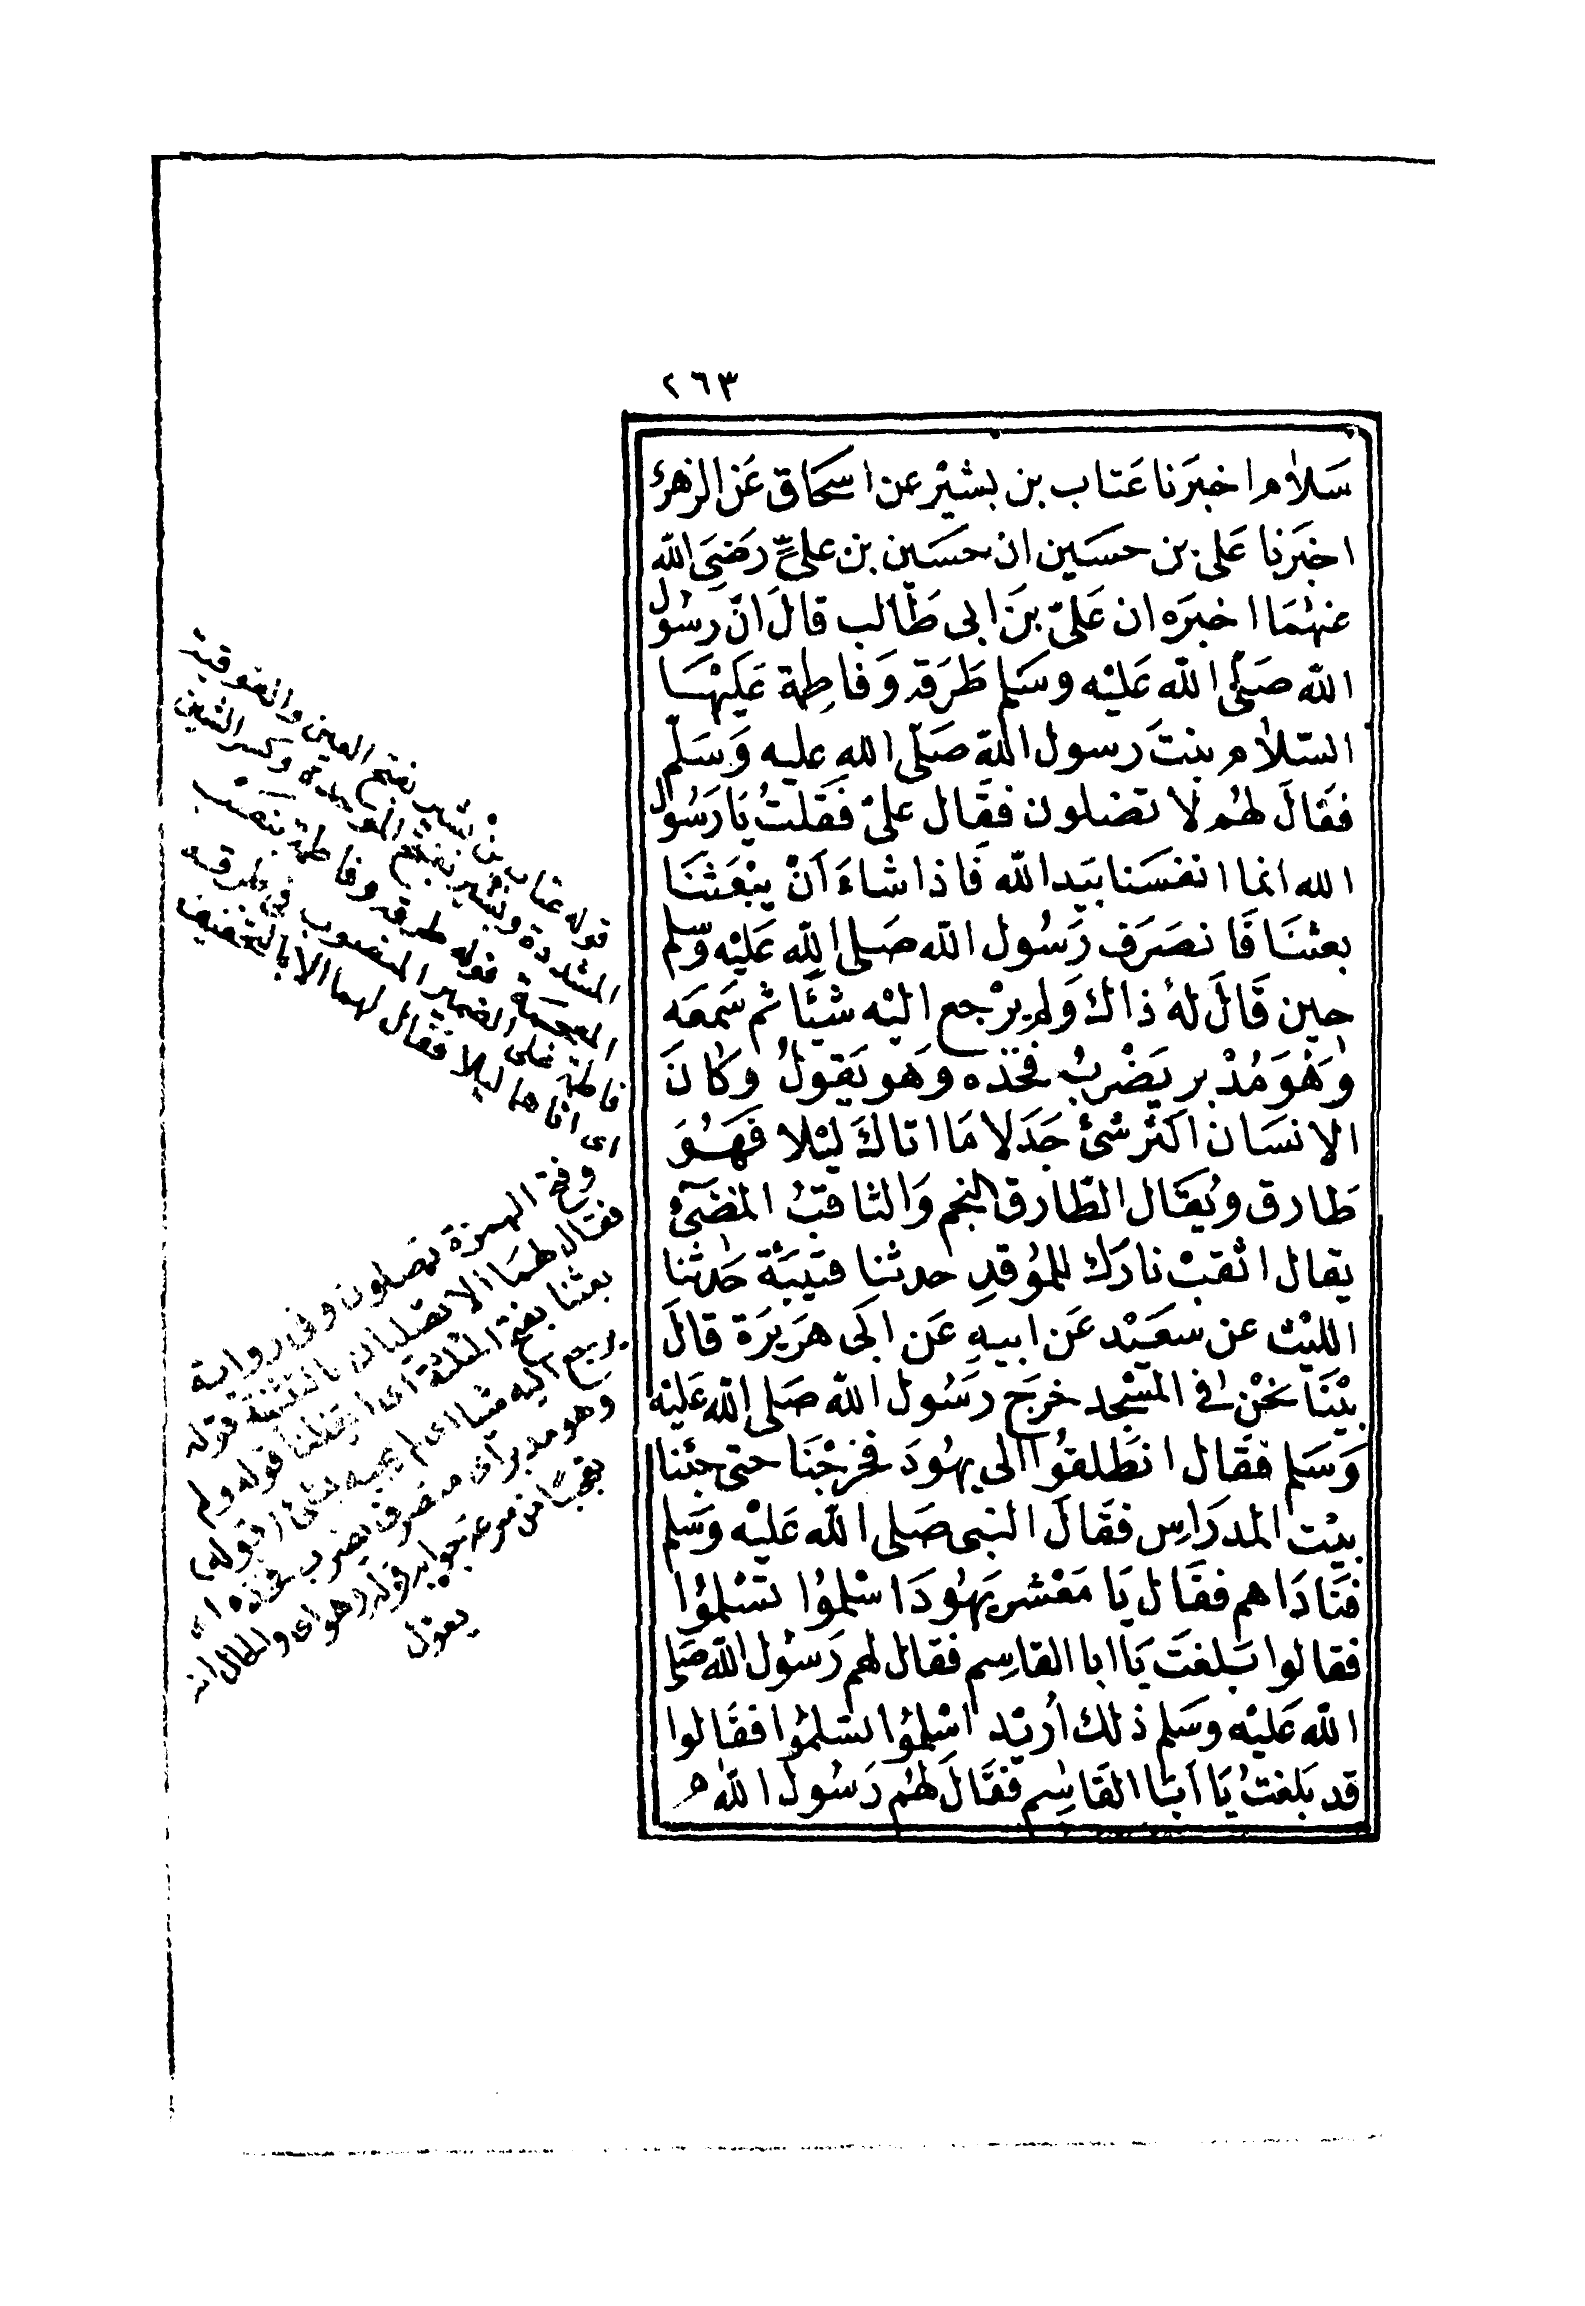 ٢٦٣
سَلاٰم اخبَرَنا عَتاب بن بشيْر عن اسحَاق عَن الزهرى
اخبَرنا عَلى بن حسَين ان حسَين بن علىّ رَضىَ الله
عنهُمَا اخبَرَه ان عَلىّ بنَ ابى طَالب قالَ انّ رسُول
الله صَلّى الله عَليْه وسَلم طَرَقه وَفاطِمة عَليْهَا
السّلاٰم بنتَ رسول اللهِ صَلّى الله عليه وَسَلّم
فقَالَ لهُم لا تصَلون فقَال علىّ فَقلتُ يَا رَسُول
الله انما انفسَنا بيَد الله فَاذا شاءَ اَنْ يبْعَثنَا
بعثنَا فَانصَرَف رَسُول الله صَلى الله عَليْه وسّلم
حين قَالَ لهُ ذاك وَلم يرْجع اليْه شيْئا ثم سَمعَه
وَهُوَ مُدْبر يَضْربُ فخذه وَهو يَقولُ وكانَ
الانسَان اكثرَ شئ جَدَلا مَا اتاكَ ليْلا فَهُوَ
طَارق ويُقَال الطّارق النجم وَالثاقبُ المضىُ
يقال اثقبْ نارَك للمُوقدِ حدثنا قتيبَة حَدثنا
الليْث عن سعَيْد عَن ابيهِ عَن ابَى هرَيرَة قالَ
بيْنَا نحْن فى المسْجد خرَج رَسُول الله صَلى الله عَليْه
وَسَلم فقَال انطَلقُوا الى يهُودَ فخرجْنَا حتى جئنا
بيْت المدرَاسِ فقَالَ النبى صَلى الله عَليْه وَسَلم
فنَادَاهم فقَال يَا مَعْشر يَهُودَ اسْلموُا تسْلموُا
فقالوا بَلغتَ يَا ابا القاسِم فقال لهم رَسُول الله صَلى
الله عَليْه وسَلم ذلك اُريْد اسْلموُا تسْلموُا فقَالوا
قد بَلغتُ يَا اَبَا القَاسِم فقَالَ لهُم رَسُول الله م
قوله عتاب بن بشير بفتح العين والفوقية
المشددة وبشير بفتح الموحدة وكسر الشين
المعجمة قوله طرقه وفاطمة بنصب
فاطمة على الضمير المنصوب فى طرقه
اى اتاها ليلا فقال لهما الا بالتخفيف
وفتح الهمزة تصلون وفى رواية
فقال لهمَا الا تصليان بالتثنية قوله
بعثنا بفتح المثلثة اى ايقظنا قوله ولم
يرجع اليه شيا اى لم يجبه بشئ (قوله)
وهو مدبر اى منصرف يضرب فخذه اى
تعجباً من سرعة جوابه قوله وهو اى والحال انه
يعول